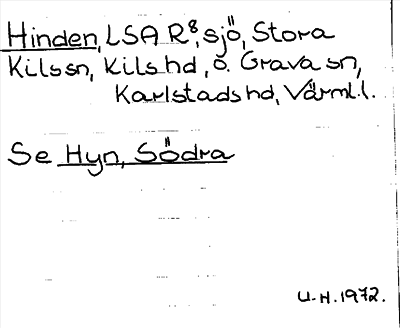 Hinden, LSA R8, sjö, Stora
Kils sn, Kils hd, o. Grava sn,
Karlstads hd, Värml. l.
Se Hyn, Södra
U-H. 1972.